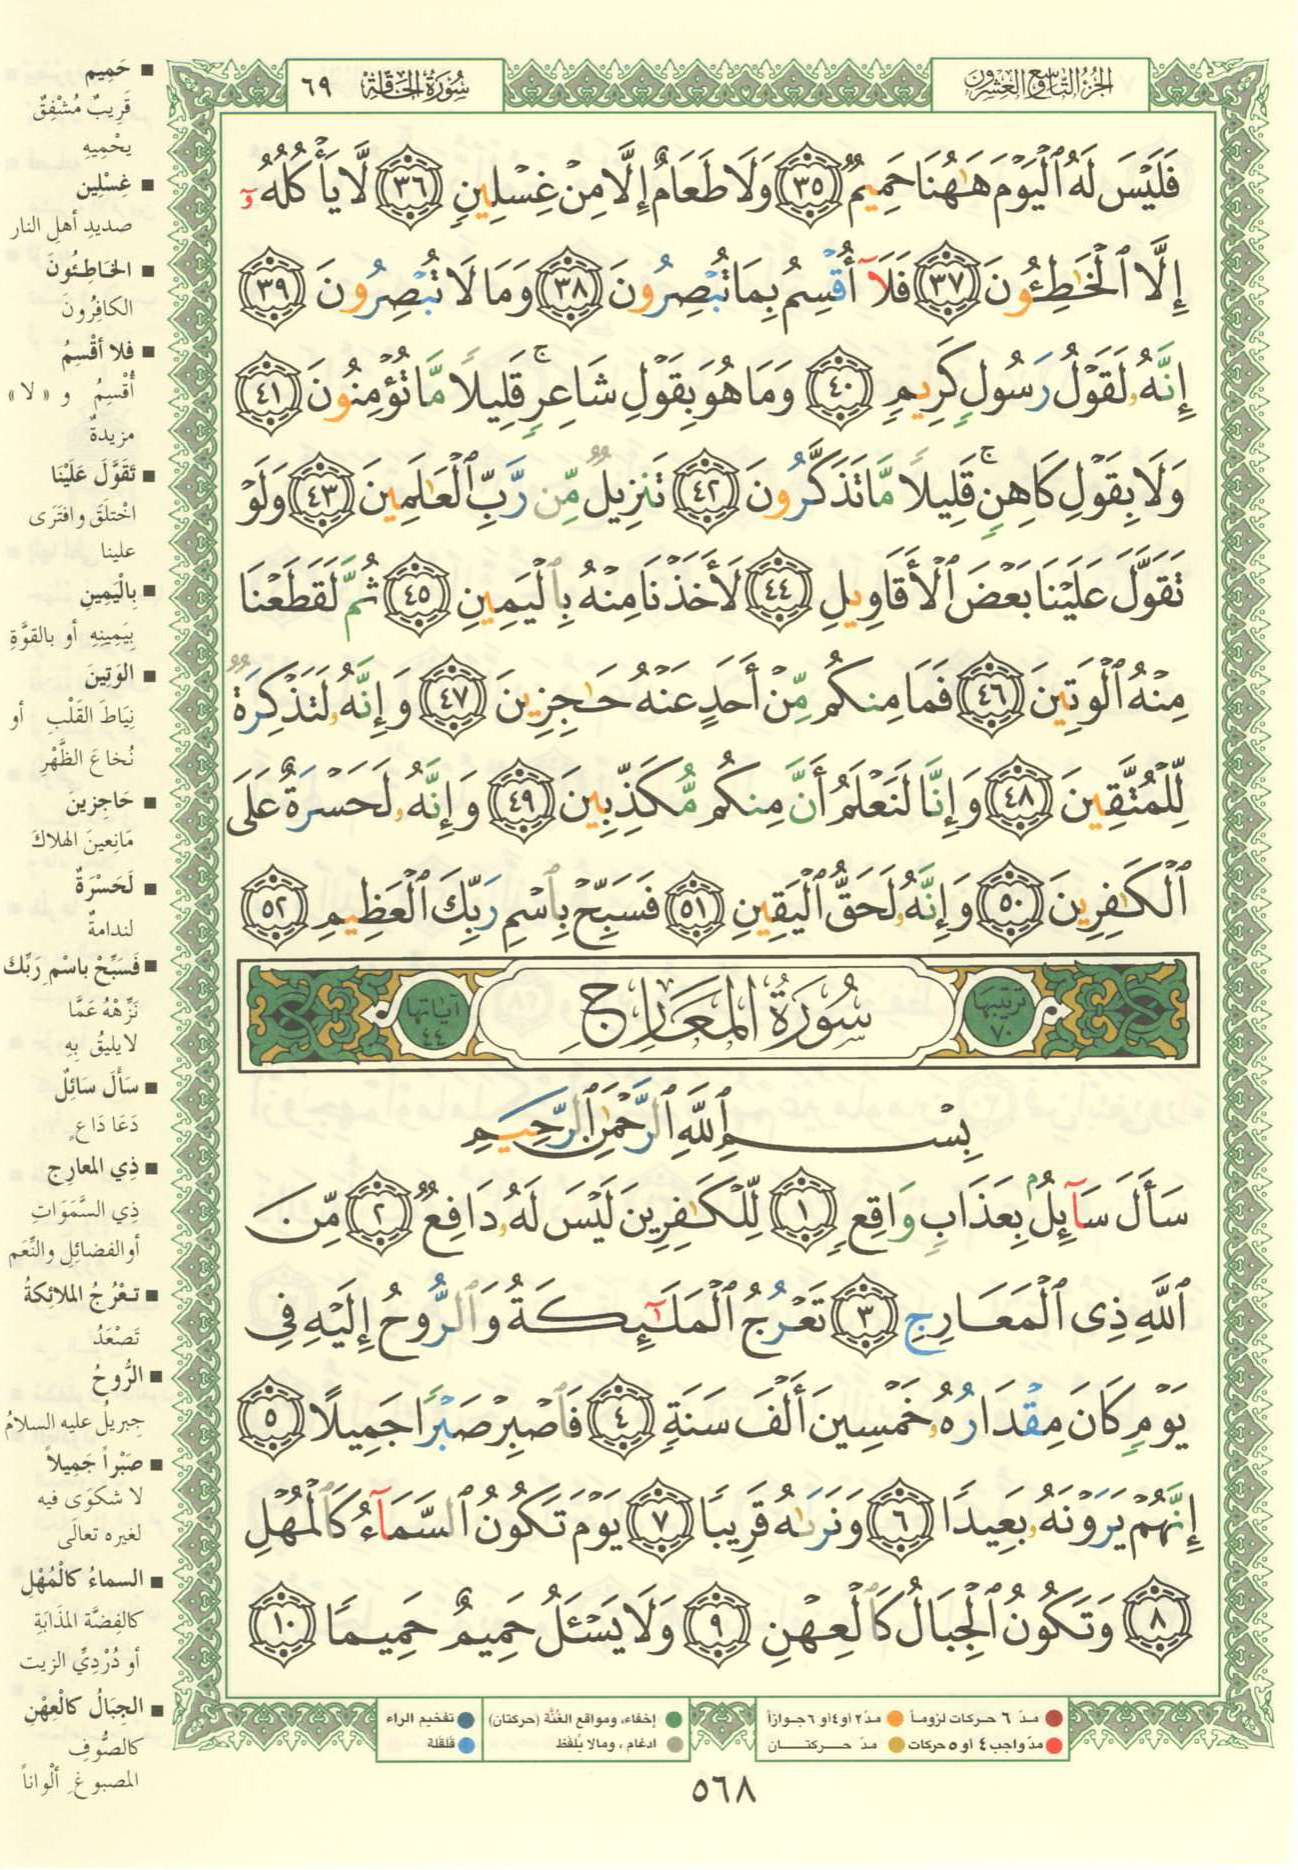 الجزء التاسع والعشرون
سورة الحاقة ٦٩
فَلَيْسَ لَهُ ٱلْيَوْمَ هَٰهُنَا حَمِيمٌ ٣٥ وَلَا طَعَامٌ إِلَّا مِنْ غِسْلِينٍ ٣٦ لَّا يَأْكُلُهُۥٓ
إِلَّا ٱلْخَٰطِـُٔونَ ٣٧ فَلَآ أُقْسِمُ بِمَا تُبْصِرُونَ ٣٨ وَمَا لَا تُبْصِرُونَ ٣٩
إِنَّهُۥ لَقَوْلُ رَسُولٍ كَرِيمٍ ٤٠ وَمَا هُوَ بِقَوْلِ شَاعِرٍ ۚ قَلِيلًا مَّا تُؤْمِنُونَ ٤١
وَلَا بِقَوْلِ كَاهِنٍ ۚ قَلِيلًا مَّا تَذَكَّرُونَ ٤٢ تَنزِيلٌ مِّن رَّبِّ ٱلْعَٰلَمِينَ ٤٣ وَلَوْ
تَقَوَّلَ عَلَيْنَا بَعْضَ ٱلْأَقَاوِيلِ ٤٤ لَأَخَذْنَا مِنْهُ بِٱلْيَمِينِ ٤٥ ثُمَّ لَقَطَعْنَا
مِنْهُ ٱلْوَتِينَ ٤٦ فَمَا مِنكُم مِّنْ أَحَدٍ عَنْهُ حَٰجِزِينَ ٤٧ وَإِنَّهُۥ لَتَذْكِرَةٌ
لِّلْمُتَّقِينَ ٤٨ وَإِنَّا لَنَعْلَمُ أَنَّ مِنكُم مُّكَذِّبِينَ ٤٩ وَإِنَّهُۥ لَحَسْرَةٌ عَلَى
ٱلْكَٰفِرِينَ ٥٠ وَإِنَّهُۥ لَحَقُّ ٱلْيَقِينِ ٥١ فَسَبِّحْ بِٱسْمِ رَبِّكَ ٱلْعَظِيمِ ٥٢
ترتيبها ٧٠ سُورَةُ المَعَارِجِ آياتها ٤٤
بِسْمِ ٱللَّهِ ٱلرَّحْمَٰنِ ٱلرَّحِيمِ
سَأَلَ سَآئِلٌۢ بِعَذَابٍ وَاقِعٍ ١ لِّلْكَٰفِرِينَ لَيْسَ لَهُۥ دَافِعٌ ٢ مِّنَ
ٱللَّهِ ذِى ٱلْمَعَارِجِ ٣ تَعْرُجُ ٱلْمَلَٰٓئِكَةُ وَٱلرُّوحُ إِلَيْهِ فِى
يَوْمٍ كَانَ مِقْدَارُهُۥ خَمْسِينَ أَلْفَ سَنَةٍ ٤ فَٱصْبِرْ صَبْرًا جَمِيلًا ٥
إِنَّهُمْ يَرَوْنَهُۥ بَعِيدًا ٦ وَنَرَىٰهُ قَرِيبًا ٧ يَوْمَ تَكُونُ ٱلسَّمَآءُ كَٱلْمُهْلِ
٨ وَتَكُونُ ٱلْجِبَالُ كَٱلْعِهْنِ ٩ وَلَا يَسْـَٔلُ حَمِيمٌ حَمِيمًا ١٠
■ حَمِيم
قَرِيبٌ مُشْفِقٌ
يحْمِيهِ
■ غِسْلِين
صديدِ أهلِ النار
■ الخَاطِئُونَ
الكافِرُونَ
■ فلا أقْسِمُ
أُقْسِمُ و « لا »
مزيدةٌ
■ تَقَوَّلَ عَلَيْنَا
اخْتلَقَ وافتَرى
علينا
■ بِالْيَمِينِ
بِيَمِينِهِ أو بالقوَّةِ
■ الوَتِينَ
نِيَاطَ القَلْبِ أو
نُخاعَ الظَّهْرِ
■ حَاجِزِينَ
مَانِعِينَ الهلاكَ
■ لَحَسْرَةٌ
لندامةٌ
■ فَسَبِّحْ باسْمِ رَبِّكَ
نَزِّهْهُ عَمَّا
لا يليقُ بِهِ
■ سَأَلَ سَائِلٌ
دَعَا دَاعٍ
■ ذِي المعارِجِ
ذِي السَّمَوَاتِ
أو الفضائلِ والنِّعَم
■ تعْرُجُ الملائِكةُ
تَصْعَدُ
■ الرُّوحُ
جِبريلُ عليه السلامُ
■ صَبْراً جَمِيلاً
لا شكوَى فيه
لغيره تعالَى
■ السماءُ كالْمُهْلِ
كالفِضَّة المذَابَةِ
أو دُرْدِيِّ الزيت
■ الجِبَالُ كالْعِهْنِ
كالصُّوفِ
المصبوغ ألْواناً
مدّ ٦ حركات لزوماً مدّ ٢ أو ٤ أو ٦ جوازاً إخفاء، ومواقع الغُنَّة (حركتان) تفخيم الراء
مدّ واجب ٤ أو ٥ حركات مدّ حركتان ادغام ، ومالا يُلفَظ قلقلة
٥٦٨